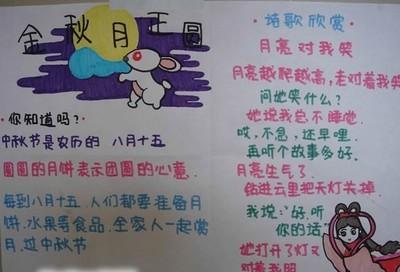 金秋月正圆
你知道吗？
中秋节是农历的 八月十五
圆圆的月饼表示团圆的心意.
每到八月十五.人们都要准备月
饼.水果等食品.全家人一起赏
月.过中秋节
诗歌欣赏
月亮对我笑
月亮越爬越高,老对着我笑
问她笑什么?
她说我总不睡觉.
哎,不急,还早哩.
再听个故事多好.
月亮生气了.
钻进云里把天灯关掉.
我说:"好.听
你的话.
她打开了灯又
对着我明